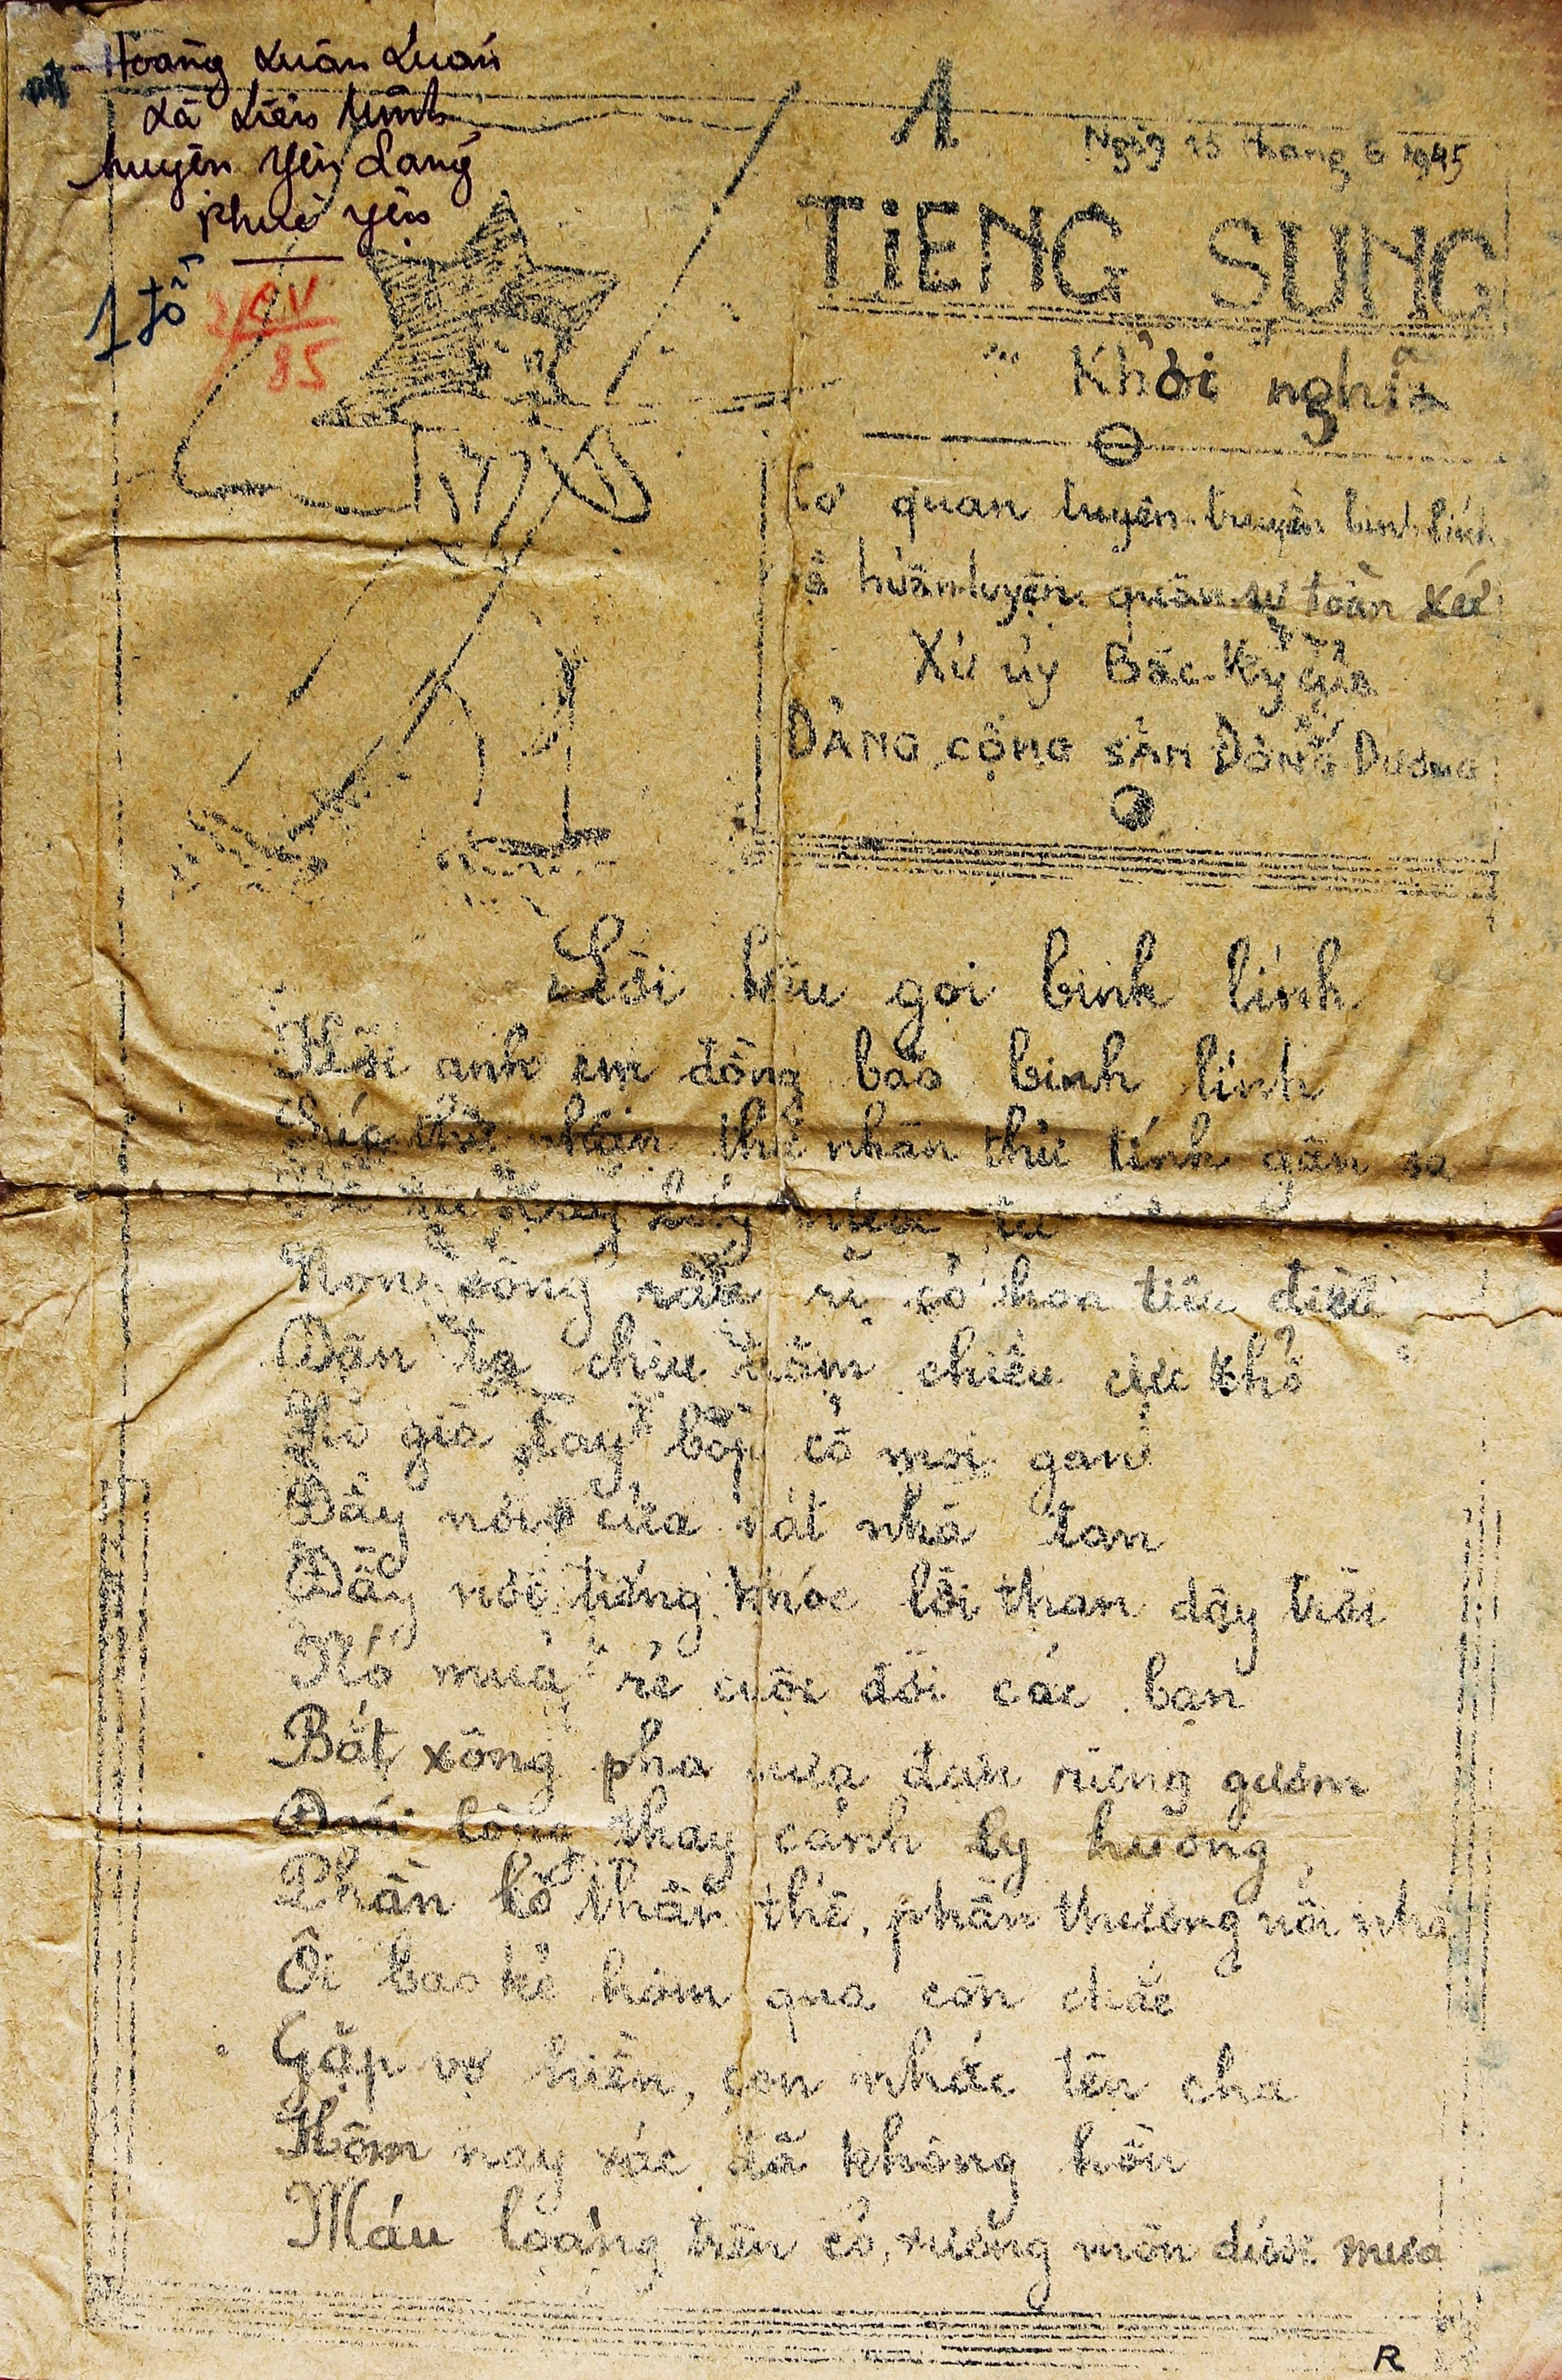 Hoàng Xuân Luân
xã Liên Minh
huyện Yên Lãng
Phúc Yên
1 tờ
85
1
Ngày 15 tháng 6 1945
TIẾNG SÚNG
Khởi nghĩa
Cơ quan tuyên truyền binh lính
và huấn luyện quân sự toàn xứ
Xứ ủy Bắc-Kỳ của
ĐẢNG CỘNG SẢN ĐÔNG DƯƠNG
Lời kêu gọi binh lính
Hỡi anh em đồng bào binh lính
thử nhân thử tính gần xa
Non sông rầu rĩ cỏ hoa tiêu điều
Dân ta chịu trăm chiều cực khổ
Kẻ già tay bóp cổ moi gan
Đầy nơi cửa nát nhà tan
Đầy nơi tiếng khóc lời than dậy trời
Nó mua rẻ cuộc đời các bạn
Bắt xông pha mưa đạn rừng gươm
Đau lòng thay cảnh ly hương
Phần lo thân thế, phần thương nỗi nhà
Ôi bao kẻ hôm qua còn chắc
Gặp vợ hiền, con nhắc tên cha
Hôm nay xác đã không hồn
Máu loang trên cỏ, xương mòn dưới mưa
R